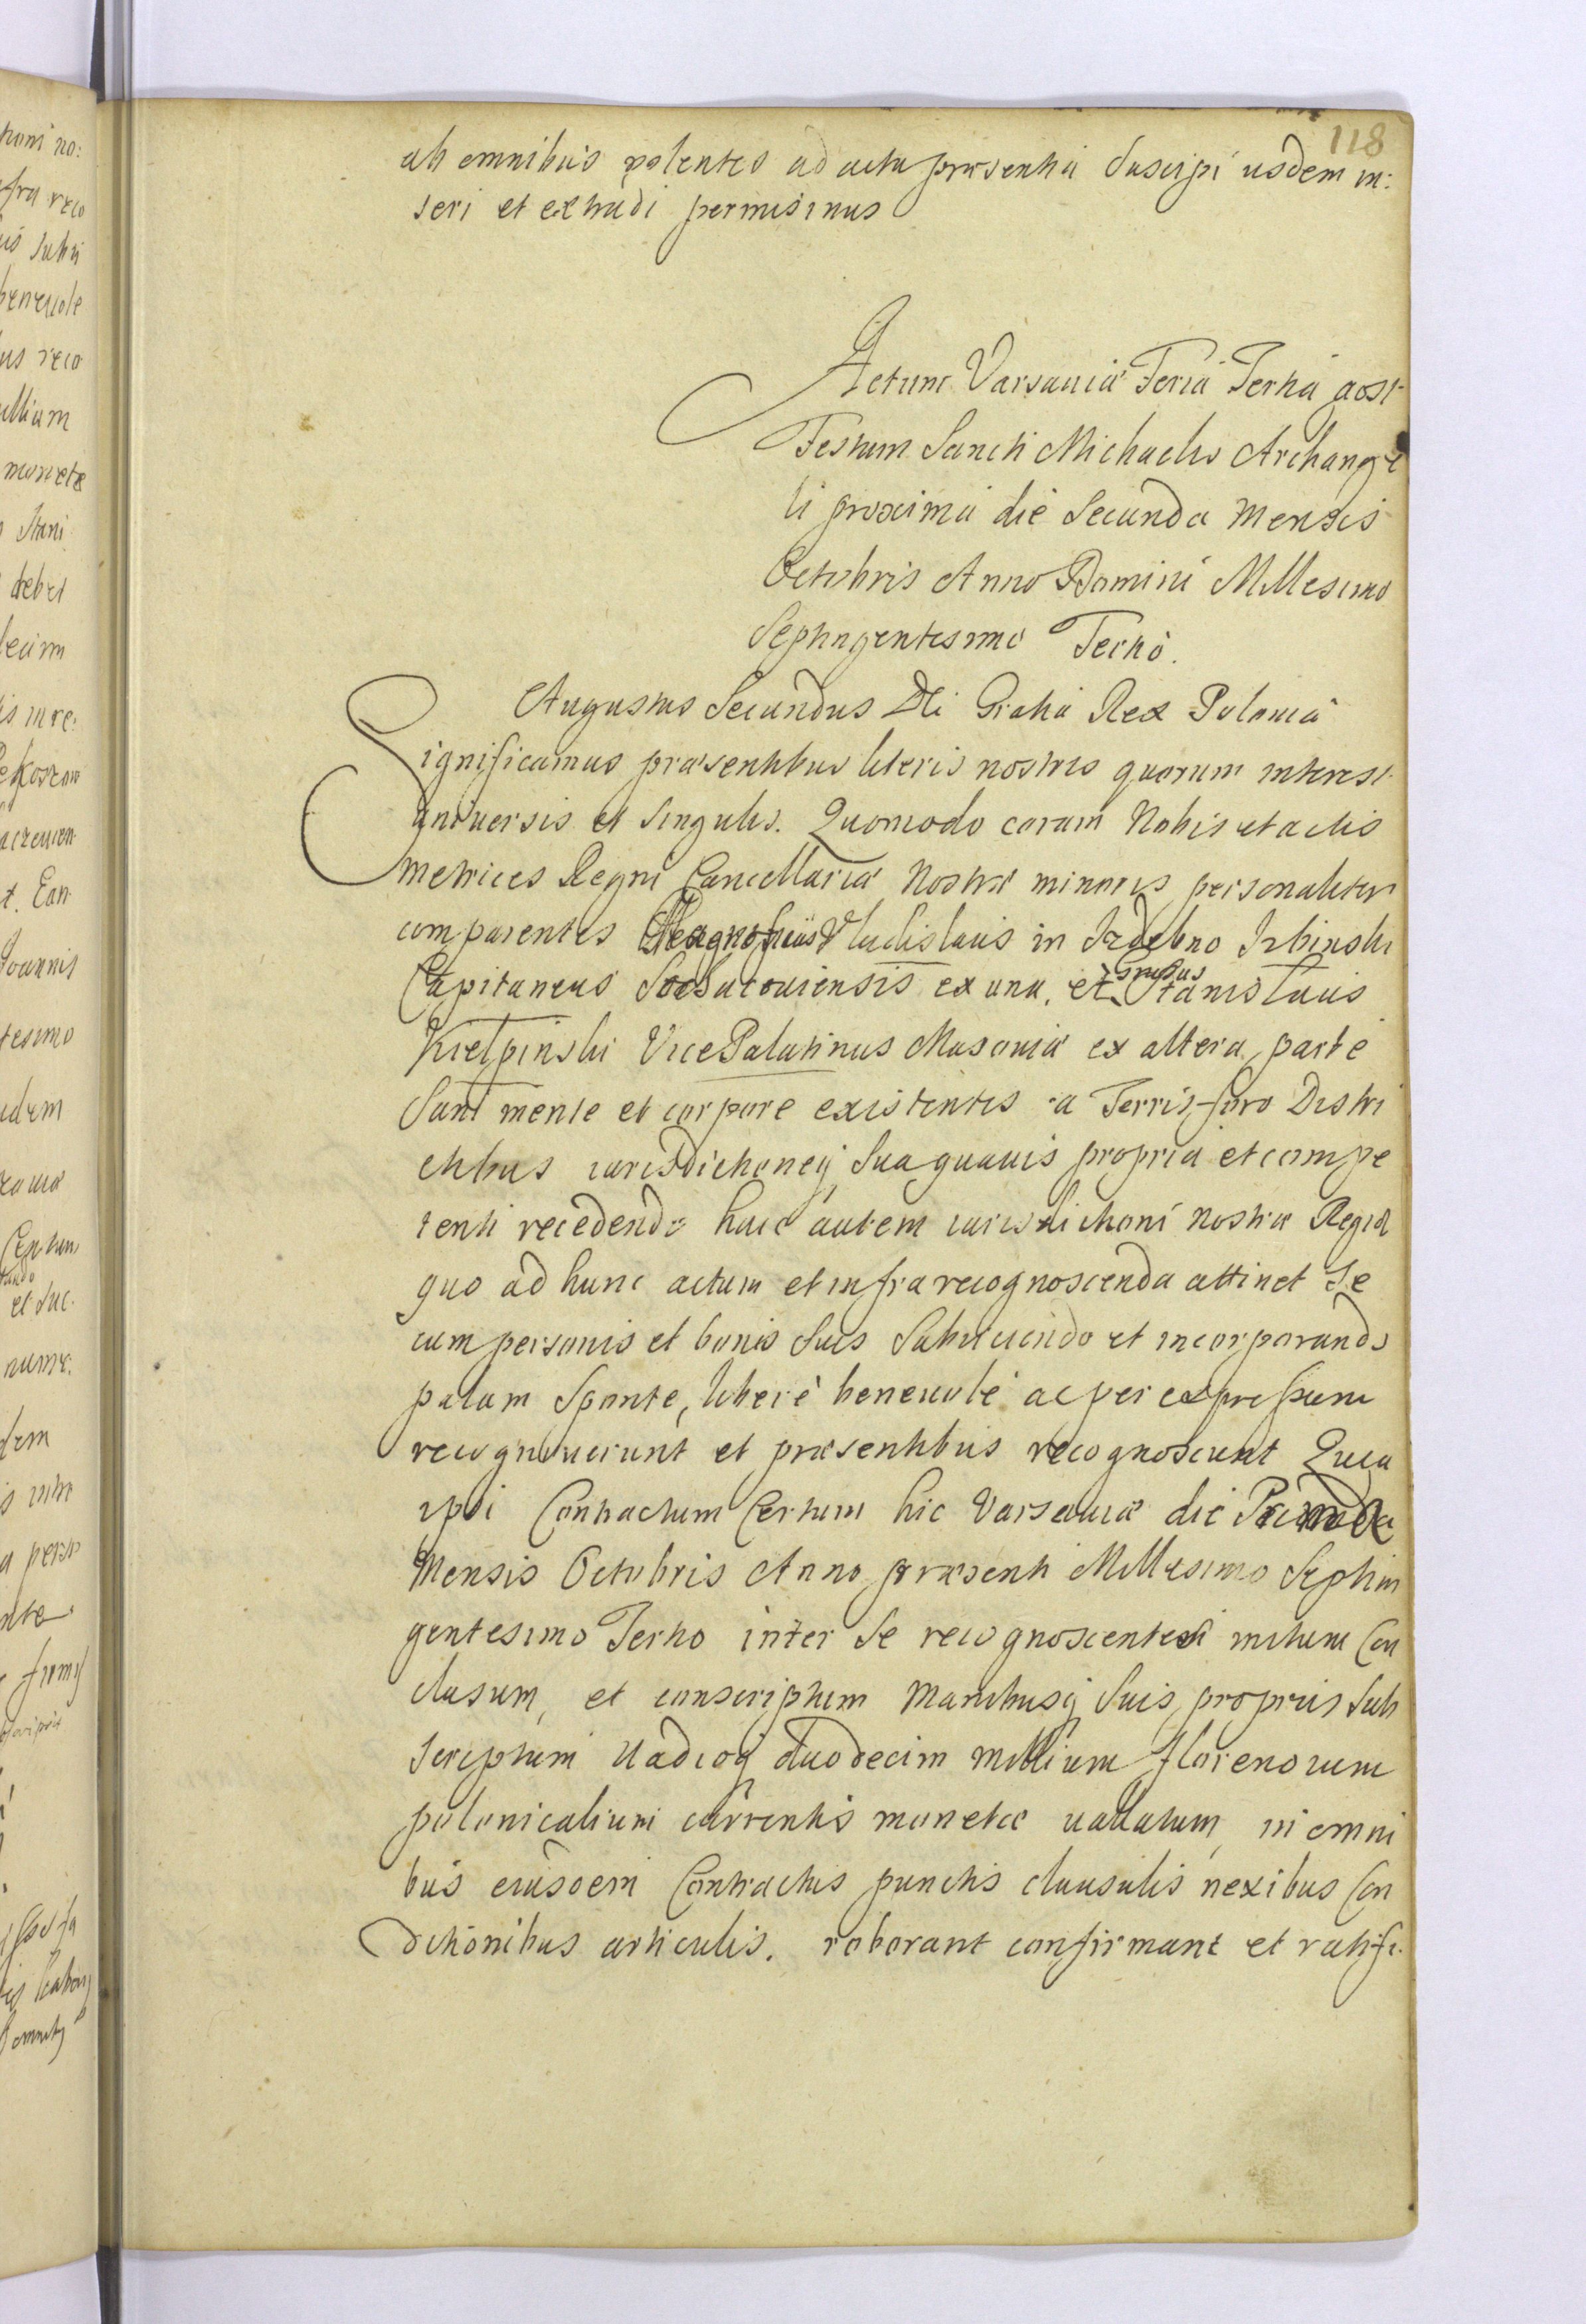 118
ab omnibus volentes ad acta præsentia suscipi iisdem in:
seri et extradi permisimus
Actum Varsauiæ Feria Tertia post
Festum Sancti Michaelis Archange
li proxima die Secunda Mensis
Octobris Anno Domini Millesimo
Septingentesimo Tertio.
Augustus Secundus Dei Gratia Rex Poloniæ
Significamus præsentibus literis nostris quorum interest
uniuersis et singulis. Quomodo coram Nobis et actis
Metrices Regni Cancellariæ Nostræ minoris personaliter
comparentes Magnificus Vladislaus in Izdebno Izbinski
Capitaneus Sochacouiensis ex una, et Grosus Stanislaus
Kielpinski Vice Palatinus Masouiæ ex altera parte
Sani mente et corpore existentes a Terris foro Distri
ctibus iurisdictioneq sua quauis propria et compe
tenti recedendo huic autem iurisdictioni nostræ Regiæ
quo ad hunc actum et infra recognoscenda attinet se
cum personis et bonis suis subiiciendo et incorporando
palam sponte, liberè beneuolè ac per expressum
recognouerunt et præsentibus recognoscunt Quia
ipsi Contractum Certum hic Varsauiæ die Prima
Mensis Octobris Anno præsenti Millesimo Septin
gentesimo Tertio inter se recognoscentes initum Con
clusum, et conscriptum Manibusq suis propriis sub
scriptum Uadioq duodecim millium florenorum
polonicalium currentis monetæ uallatum, in omni
bus eiusdem Contractus punctis clausulis nexibus Con
ditionibus articulis. roborant confirmant et ratifi.